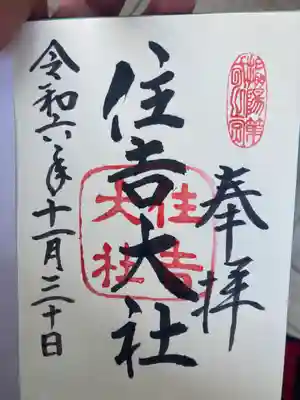 奉拝
住吉大社
令和六年十一月三十日
住吉大社